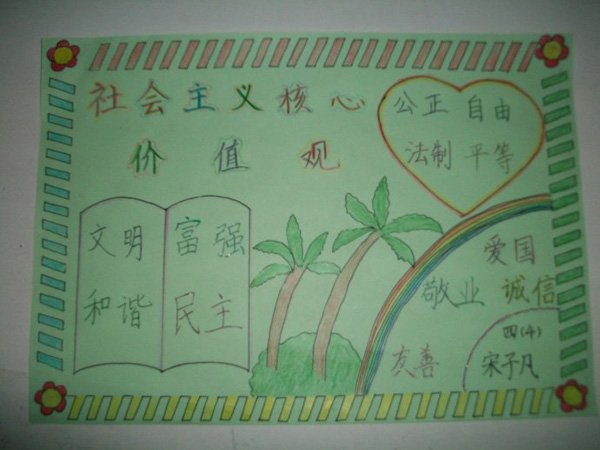 社会主义核心
价值观
公正 自由
法制 平等
文明 富强
和谐 民主
爱国
敬业 诚信
友善
四(4)
宋子凡